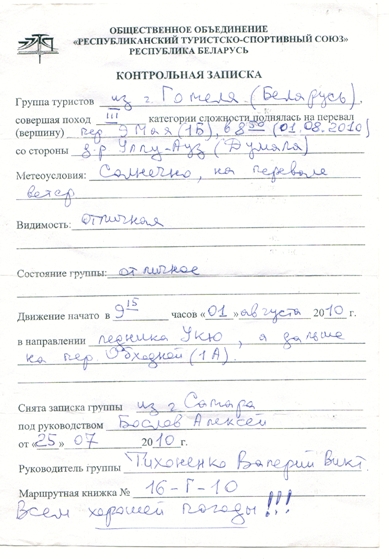 ОБЩЕСТВЕННОЕ ОБЪЕДИНЕНИЕ
«РЕСПУБЛИКАНСКИЙ ТУРИСТСКО-СПОРТИВНЫЙ СОЮЗ»
РЕСПУБЛИКА БЕЛАРУСЬ
КОНТРОЛЬНАЯ ЗАПИСКА
Группа туристов из г. Гомеля (Беларусь),
совершая поход III категории сложности поднялась на перевал
(вершину) пер 9 Мая (1Б), в 8 50 (01.08.2010)
со стороны д.р Уллу-Ауз (Думала)
Метеоусловия: Солнечно, на перевале
ветер
Видимость: отличная
Состояние группы: отличное
Движение начато в 9 15 часов «01» августа 2010 г.
в направлении ледника Укю, а дальше
на пер Обходной (1А).
Снята записка группы из г. Самара
под руководством Алексей
от «25» 07 2010 г.
Руководитель группы Тихоненко Валерий Викт
Маршрутная книжка № 16-Г-10
Всем хорошей погоды!!!